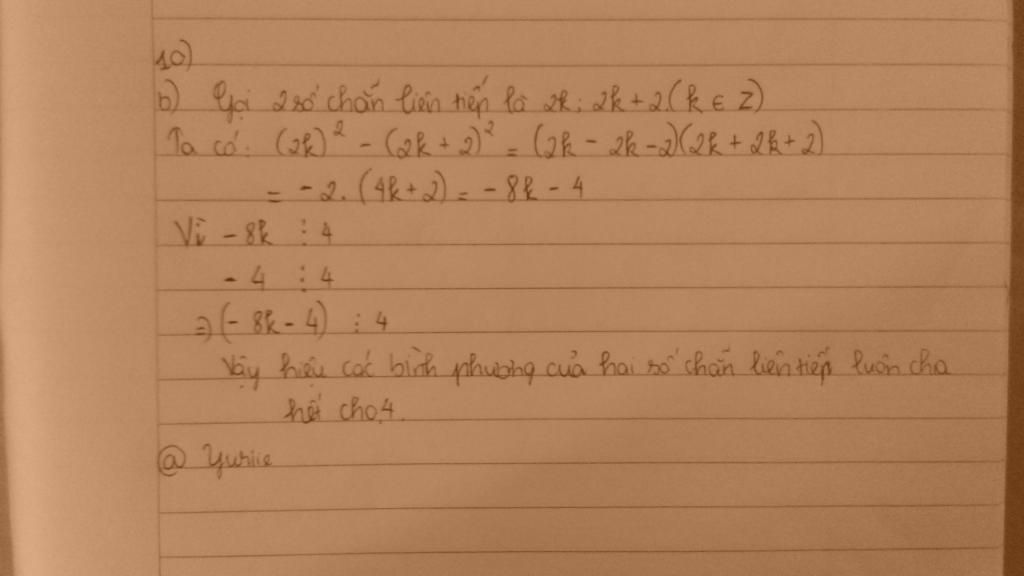 10)
b) Gọi 2 số chẵn liên tiếp là 2k; 2k + 2 (k ∈ Z)
Ta có: (2k)² - (2k + 2)² = (2k - 2k - 2)(2k + 2k + 2)
= - 2. (4k + 2) = - 8k - 4
Vì - 8k ⋮ 4
- 4 ⋮ 4
⇒ (- 8k - 4) ⋮ 4
Vậy hiệu các bình phương của hai số chẵn liên tiếp luôn chia
hết cho 4.
@ Yuriie